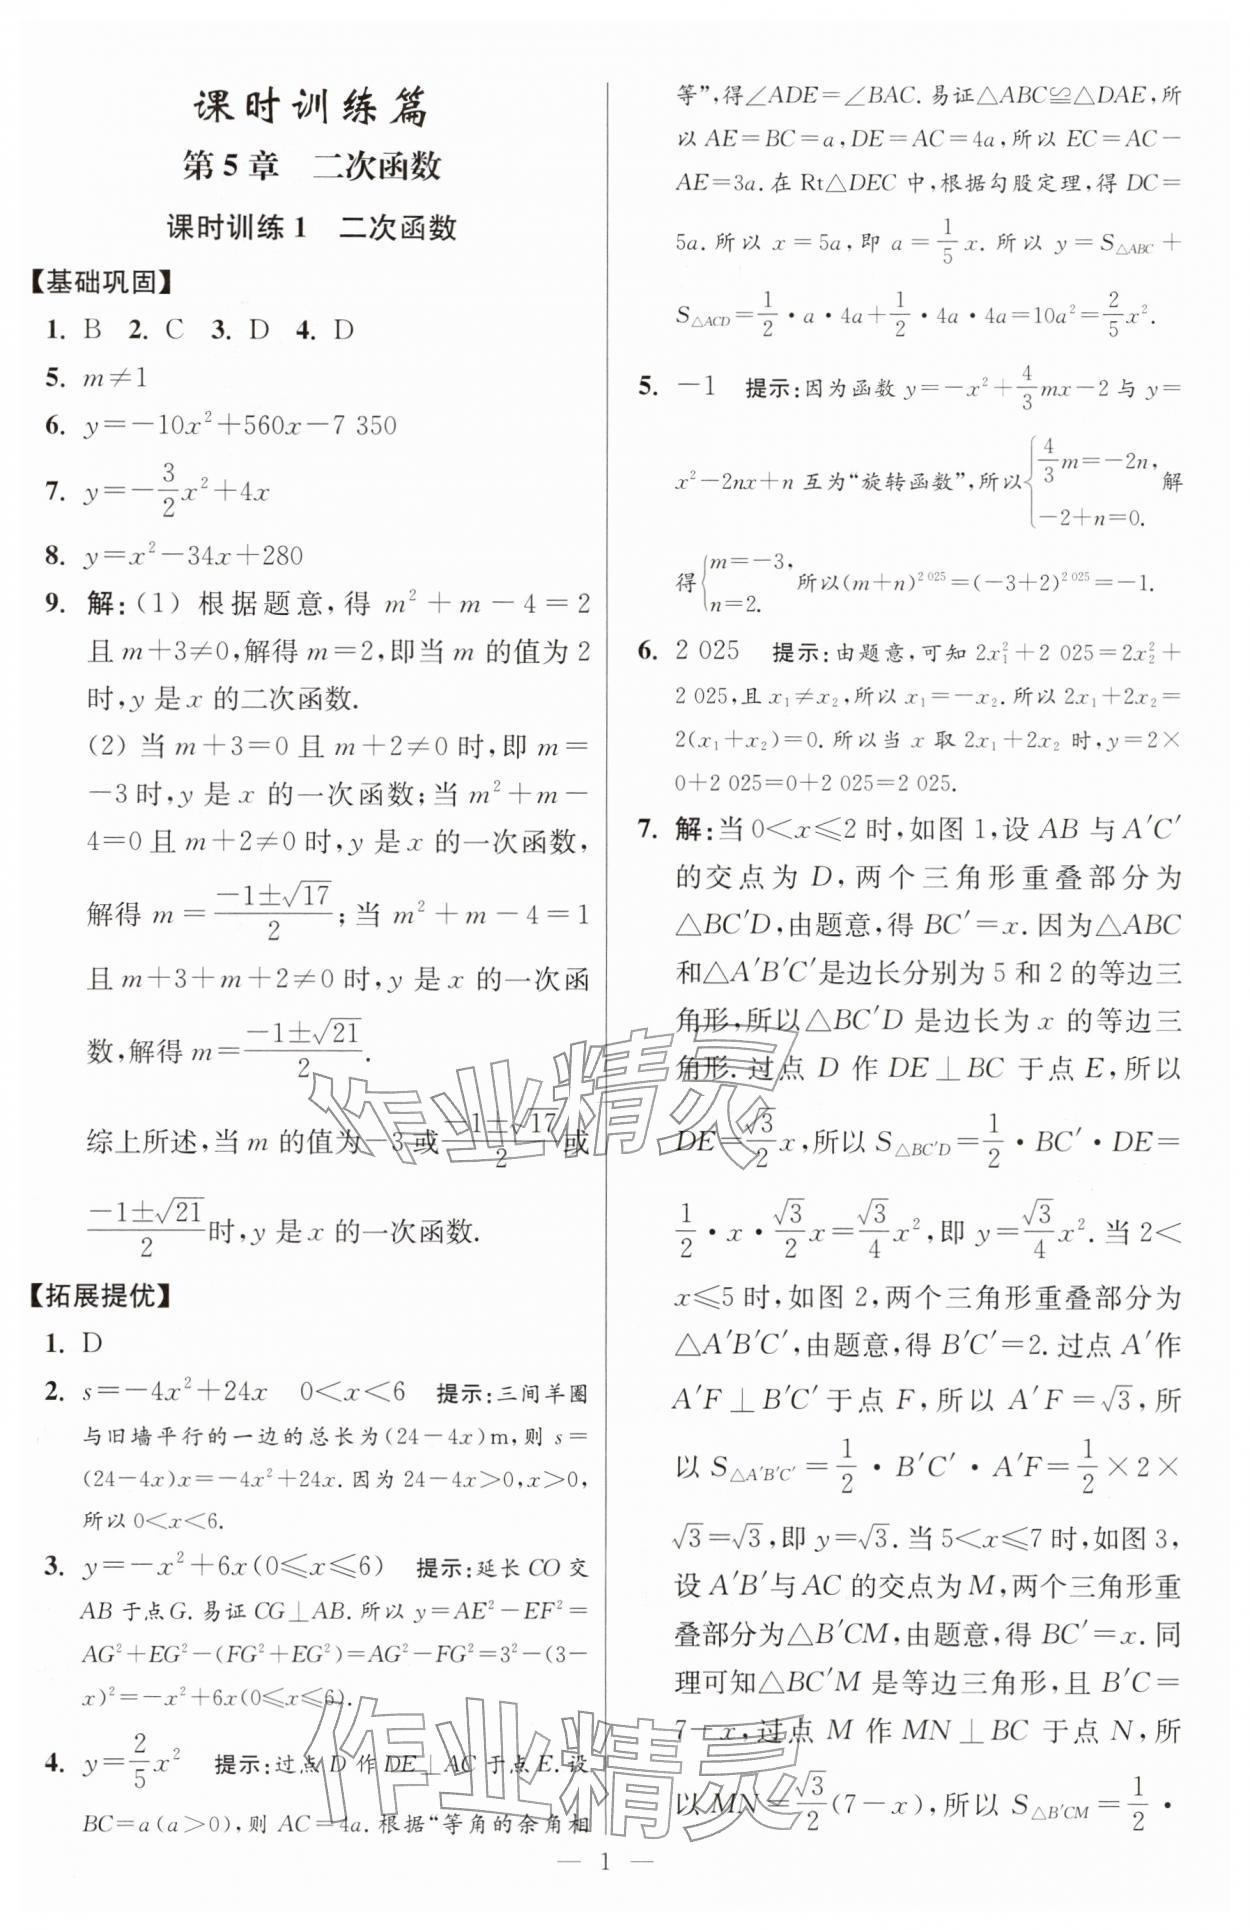 课时训练篇
第5章 二次函数
课时训练1 二次函数
【基础巩固】
1. B 2. C 3. D 4. D
5. m≠1
6. y=-10x²+560x-7 350
7. y=-\frac{3}{2}x²+4x
8. y=x²-34x+280
9. 解:(1) 根据题意,得 m²+m-4=2
且 m+3≠0,解得 m=2,即当 m 的值为 2
时,y 是 x 的二次函数.
(2) 当 m+3=0 且 m+2≠0 时,即 m=
-3 时,y 是 x 的一次函数;当 m²+m-
4=0 且 m+2≠0 时,y 是 x 的一次函数,
解得 m=\frac{-1±√17}{2};当 m²+m-4=1
且 m+3+m+2≠0 时,y 是 x 的一次函
数,解得 m=\frac{-1±√21}{2}.
综上所述,当 m 的值为-3 或\frac{-1±√17}{2}或
\frac{-1±√21}{2}时,y 是 x 的一次函数.
【拓展提优】
1. D
2. s=-4x²+24x 0<x<6 提示:三间羊圈
与旧墙平行的一边的总长为(24-4x)m,则 s=
(24-4x)x=-4x²+24x.因为 24-4x>0,x>0,
所以 0<x<6.
3. y=-x²+6x(0≤x≤6) 提示:延长 CO 交
AB 于点 G.易证 CG⊥AB.所以 y=AE²-EF²=
AG²+EG²-(FG²+EG²)=AG²-FG²=3²-(3-
x)²=-x²+6x(0≤x≤6).
4. y=\frac{2}{5}x² 提示:过点 D 作 DE⊥AC 于点 E.设
BC=a(a>0),则 AC=4a.根据“等角的余角相
等”,得∠ADE=∠BAC.易证△ABC≌△DAE,所
以 AE=BC=a,DE=AC=4a,所以 EC=AC-
AE=3a.在 Rt△DEC 中,根据勾股定理,得 DC=
5a.所以 x=5a,即 a=\frac{1}{5}x.所以 y=S△ABC+
S△ACD=\frac{1}{2}·a·4a+\frac{1}{2}·4a·4a=10a²=\frac{2}{5}x².
5. -1 提示:因为函数 y=-x²+\frac{4}{3}mx-2 与 y=
x²-2nx+n 互为“旋转函数”,所以{\frac{4}{3}m=-2n, -2+n=0. 解
得{m=-3, n=2. 所以(m+n)^{2 025}=(-3+2)^{2 025}=-1.
6. 2 025 提示:由题意,可知 2x₁²+2 025=2x₂²+
2 025,且 x₁≠x₂,所以 x₁=-x₂.所以 2x₁+2x₂=
2(x₁+x₂)=0.所以当 x 取 2x₁+2x₂ 时,y=2×
0+2 025=0+2 025=2 025.
7. 解:当 0<x≤2 时,如图 1,设 AB 与 A′C′
的交点为 D,两个三角形重叠部分为
△BC′D,由题意,得 BC′=x.因为△ABC
和△A′B′C′是边长分别为 5 和 2 的等边三
角形,所以△BC′D 是边长为 x 的等边三
角形.过点 D 作 DE⊥BC 于点 E,所以
DE=\frac{√3}{2}x,所以 S△BC′D=\frac{1}{2}·BC′·DE=
\frac{1}{2}·x·\frac{√3}{2}x=\frac{√3}{4}x²,即 y=\frac{√3}{4}x².当 2<
x≤5 时,如图 2,两个三角形重叠部分为
△A′B′C′,由题意,得 B′C′=2.过点 A′作
A′F⊥B′C′于点 F,所以 A′F=√3,所
以 S△A′B′C′=\frac{1}{2}·B′C′·A′F=\frac{1}{2}×2×
√3=√3,即 y=√3.当 5<x≤7 时,如图 3,
设 A′B′与 AC 的交点为 M,两个三角形重
叠部分为△B′CM,由题意,得 BC′=x.同
理可知△BC′M 是等边三角形,且 B′C=
7-x,过点 M 作 MN⊥BC 于点 N,所
以 MN=\frac{√3}{2}(7-x),所以 S△B′CM=\frac{1}{2}·
— 1 —
作业精灵
作业精灵